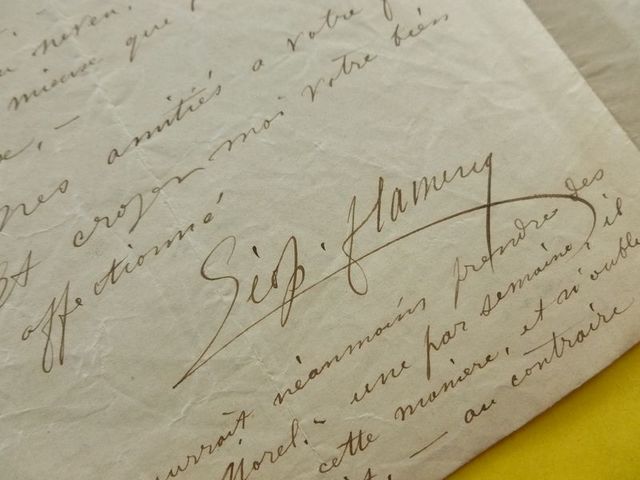 neveu.
mieux que
amitiés a votre
et croyez moi votre bien
affectionné
Léop. Flameng
néanmoins prendre des
Morel. - une par semaine, il
cette manière, et n'oublie
- au contraire